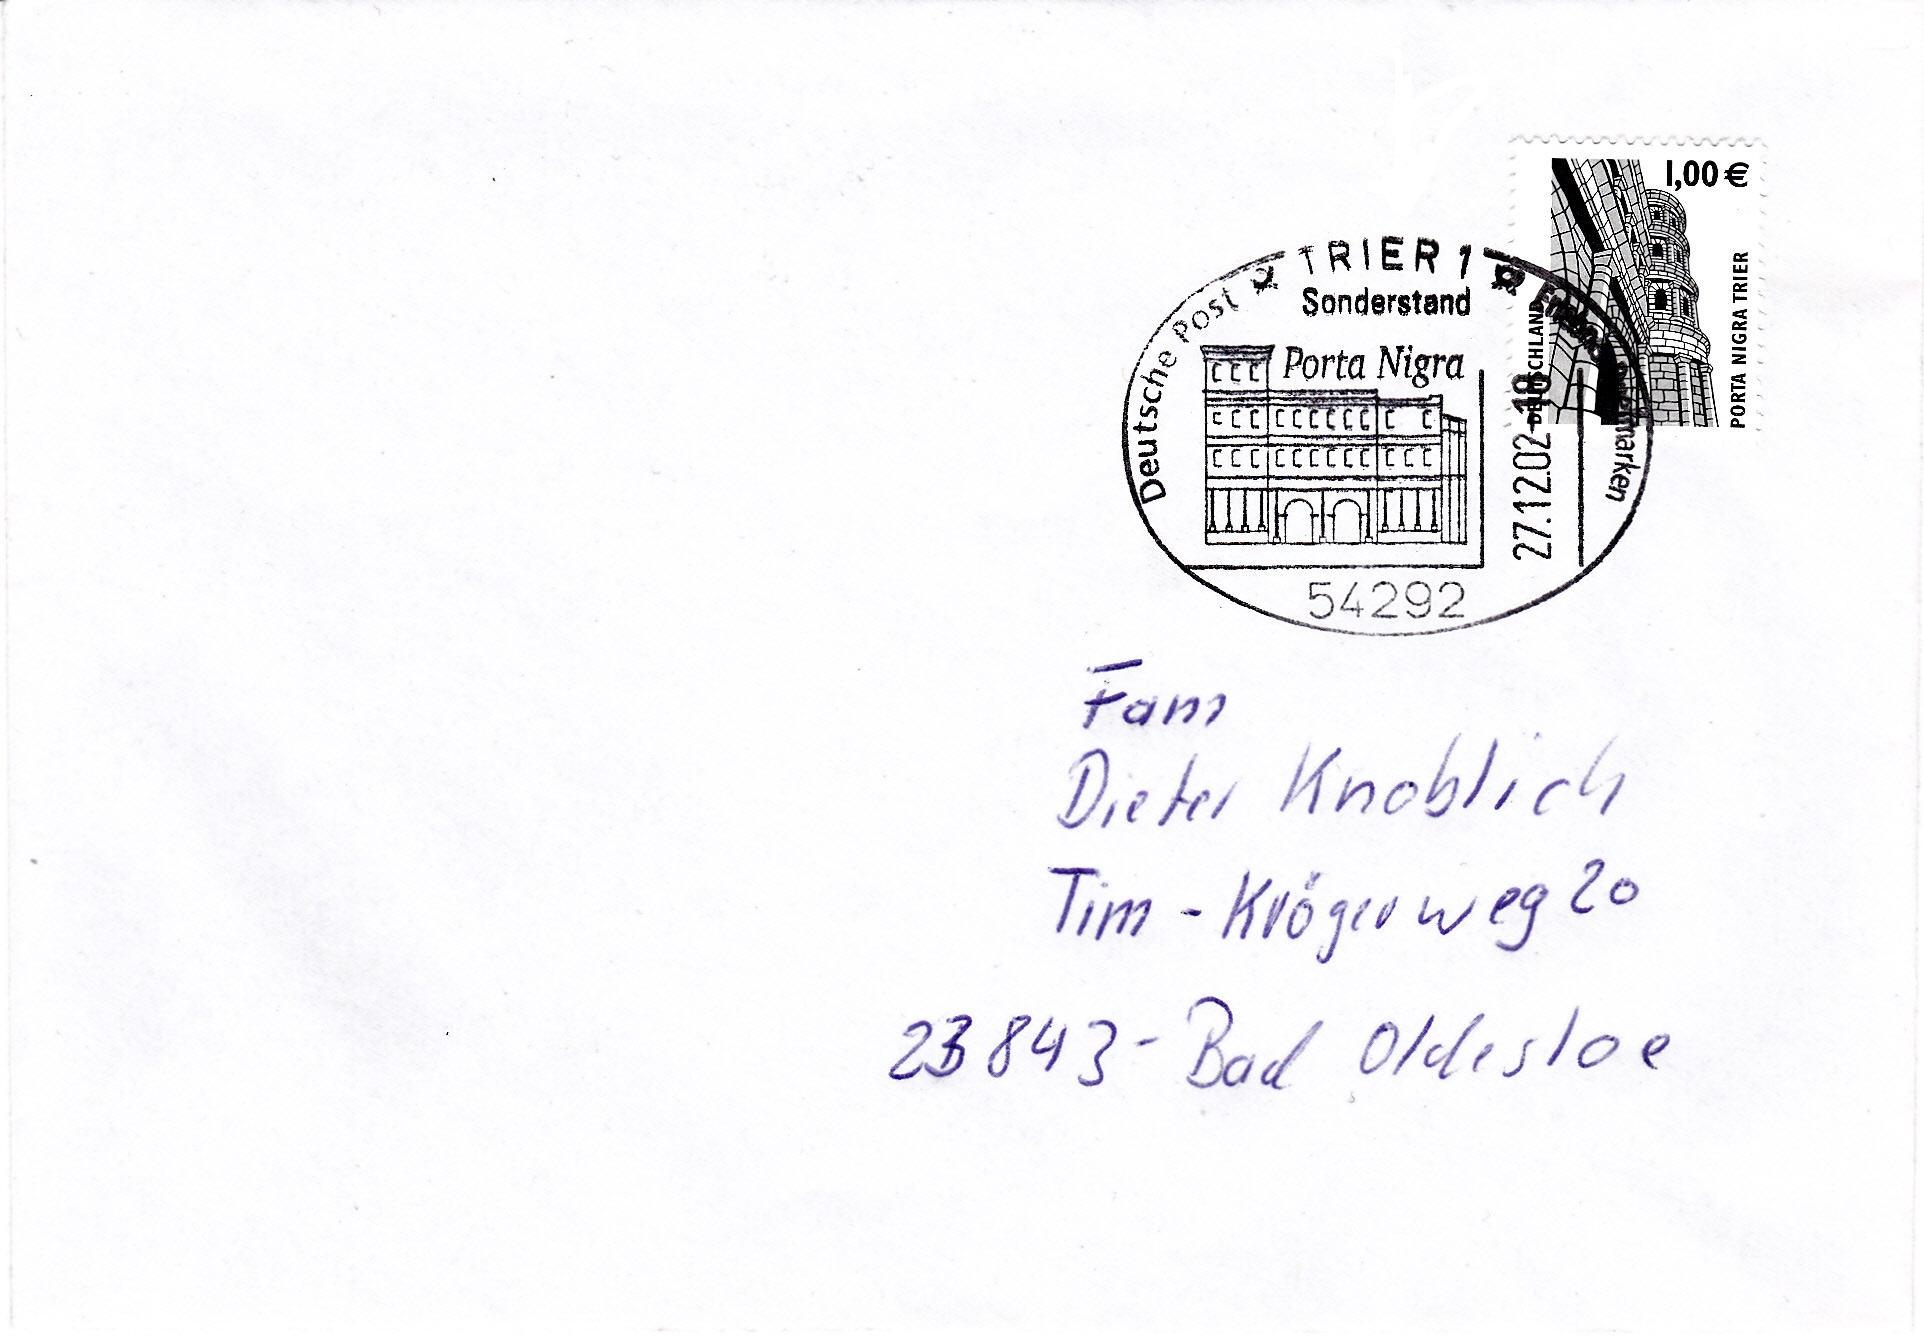 1,00 €
DEUTSCHLAND
PORTA NIGRA TRIER
TRIER 1
Sonderstand
Deutsche Post
Erlebnis Briefmarken
Porta Nigra
27.12.02-18
54292
Fam
Dieter Knoblich
Tim - Krögerweg 20
23843 - Bad Oldesloe